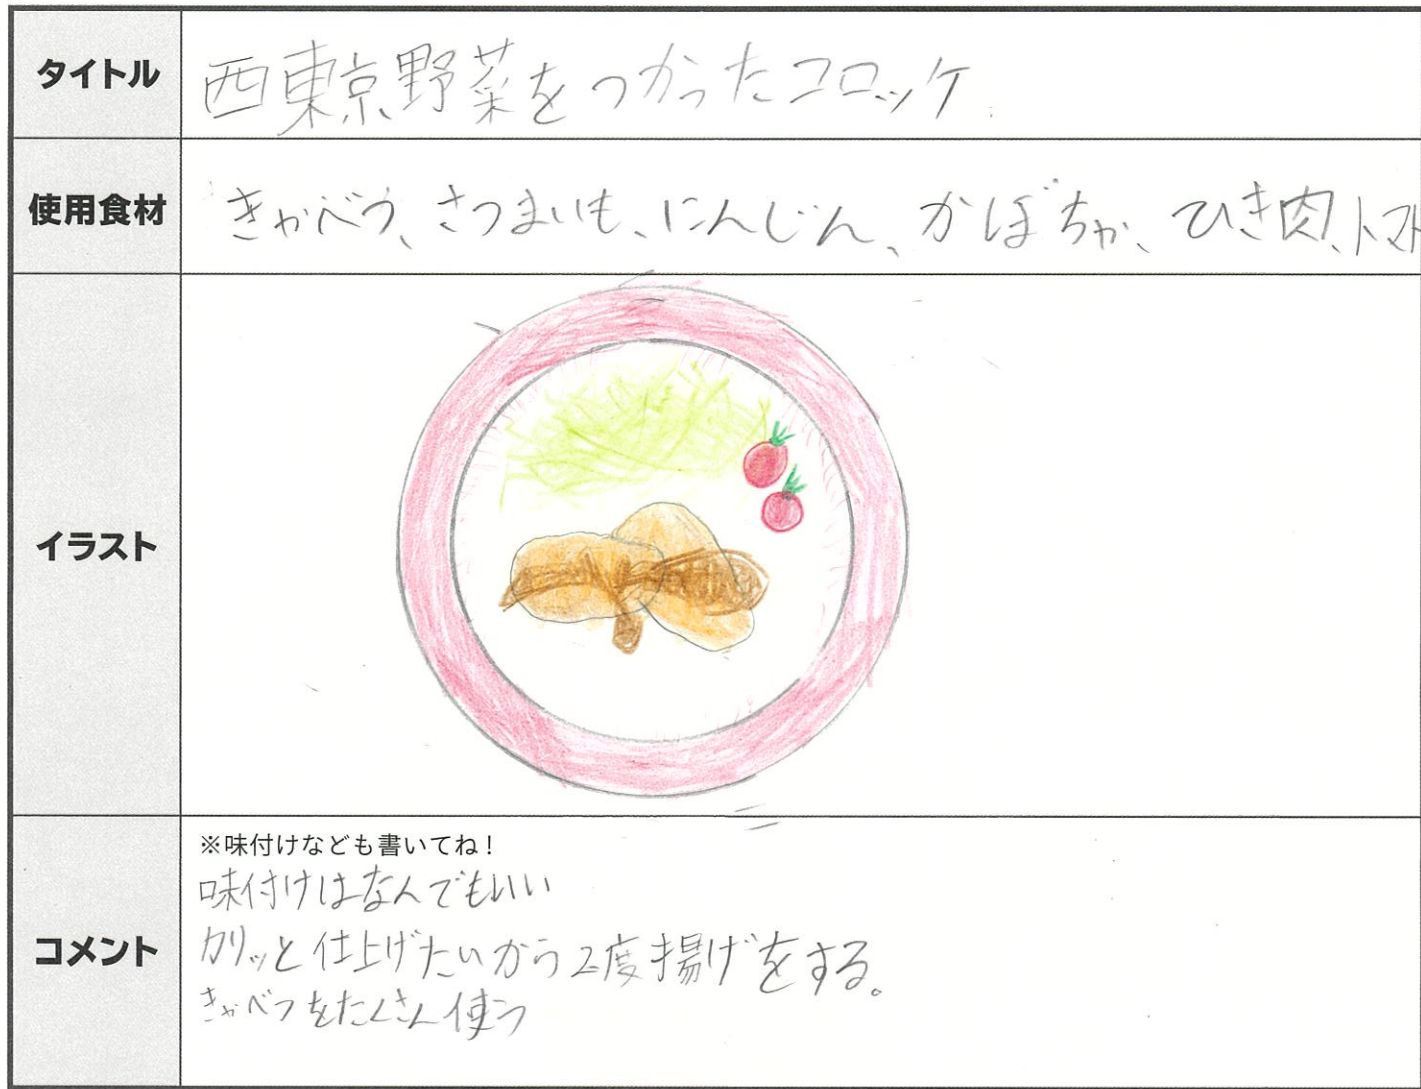 タイトル
西東京野菜をつかったコロッケ
使用食材
きゃべつ、さつまいも、にんじん、かぼちゃ、ひき肉、トマト
イラスト
コメント
※味付けなども書いてね！
味付けはなんでもいい
カリッと仕上げたいから2度揚げをする。
きゃべつをたくさん使う